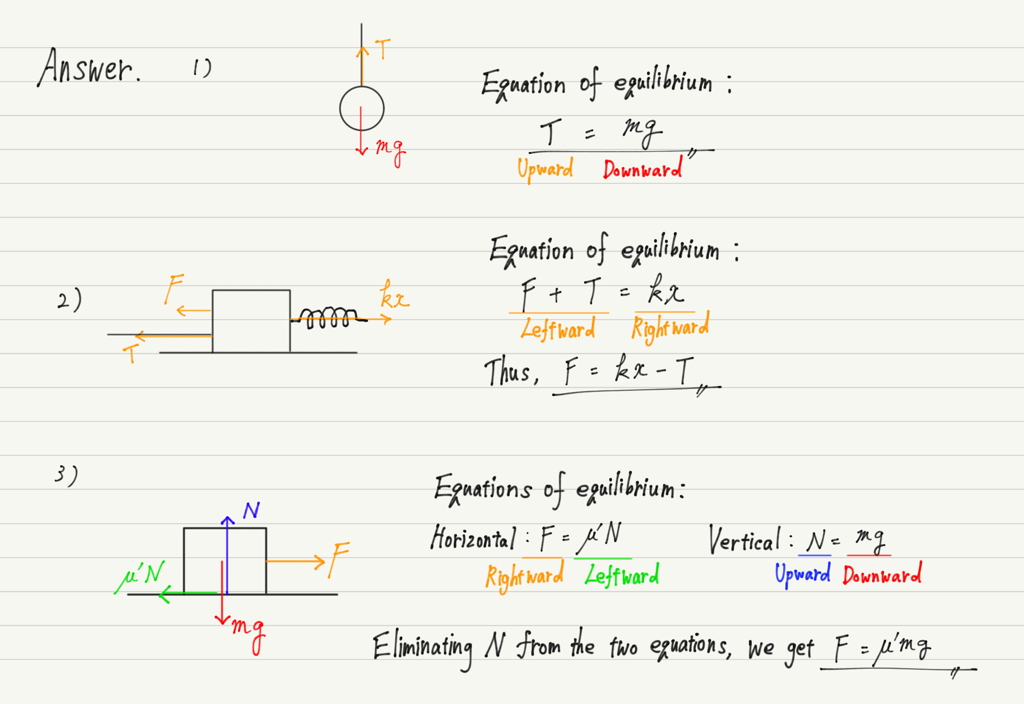 Answer. 1)
T
mg
Equation of equilibrium :
T = mg
Upward Downward
2)
F
T
kx
Equation of equilibrium :
F + T = kx
Leftward Rightward
Thus, F = kx - T
3)
N
F
μ'N
mg
Equations of equilibrium :
Horizontal : F = μ'N Vertical : N = mg
Rightward Leftward Upward Downward
Eliminating N from the two equations, we get F = μ'mg